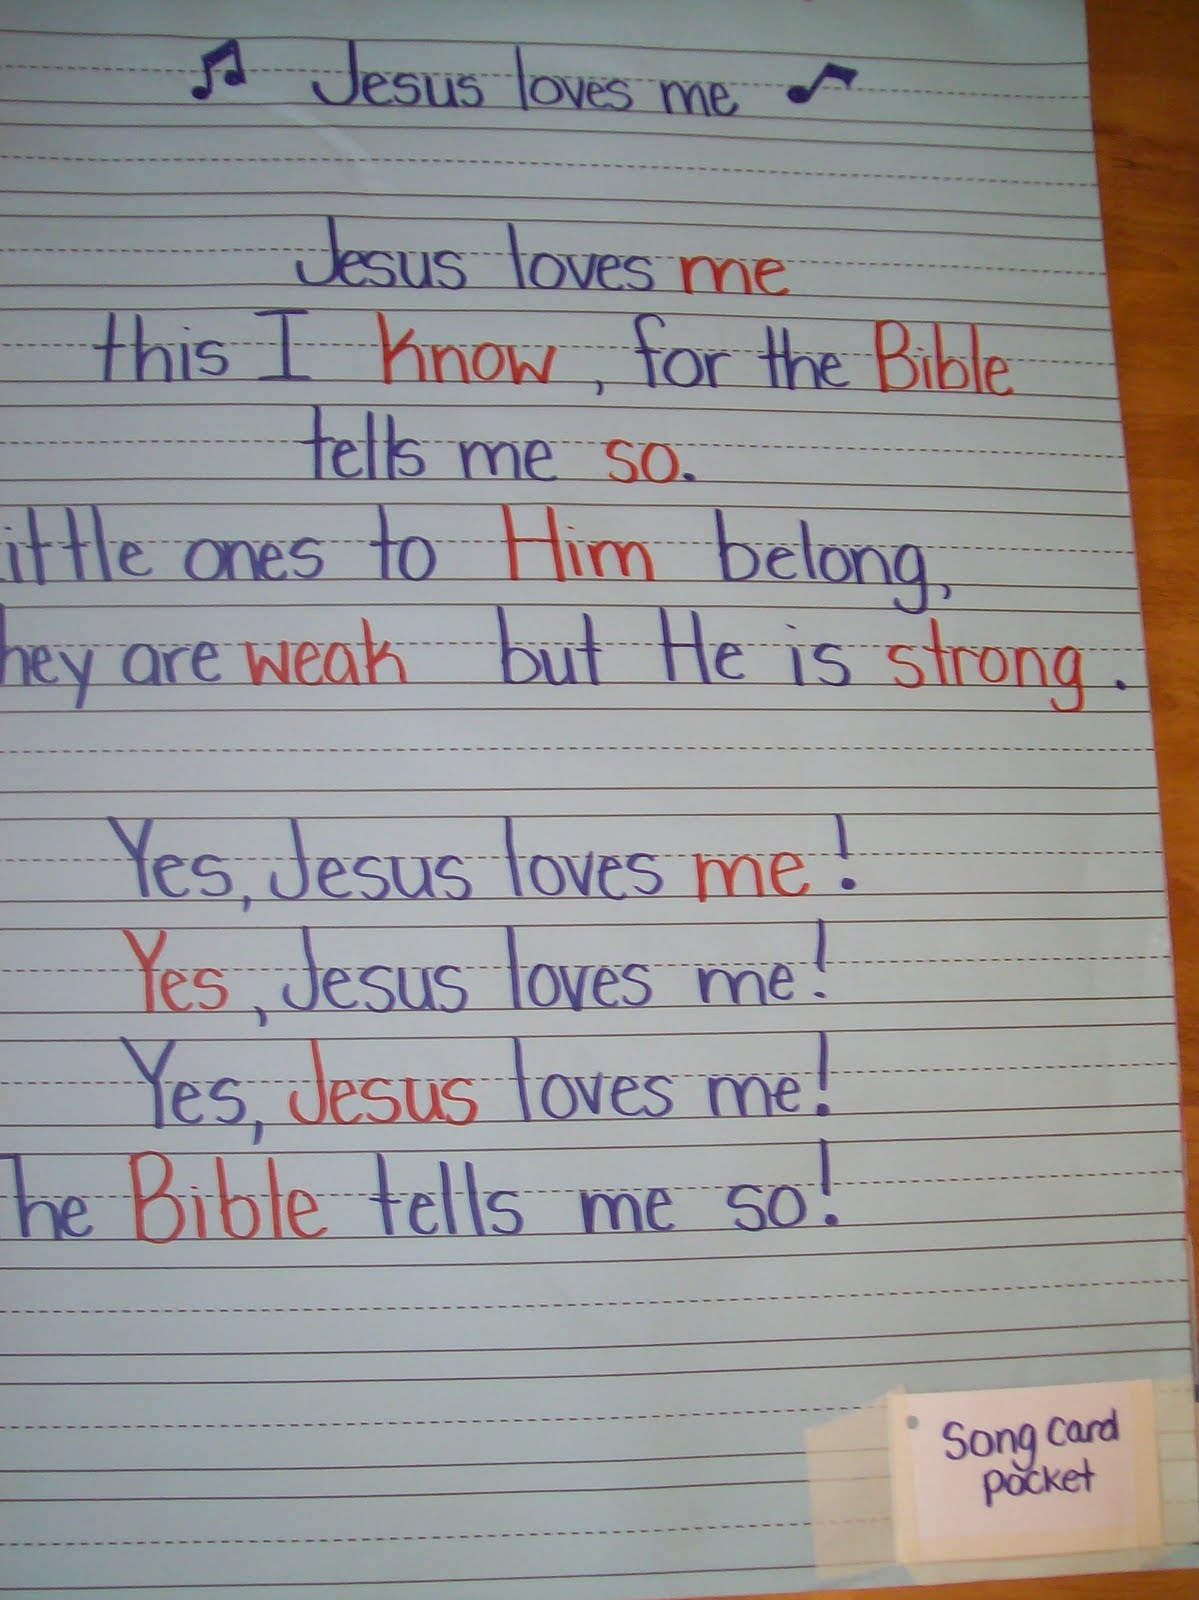 Jesus loves me
Jesus loves me
this I know, for the Bible
tells me so.
ittle ones to Him belong,
hey are weak but He is strong.
Yes, Jesus loves me!
Yes, Jesus loves me!
Yes, Jesus loves me!
he Bible tells me so!
Song Card
pocket